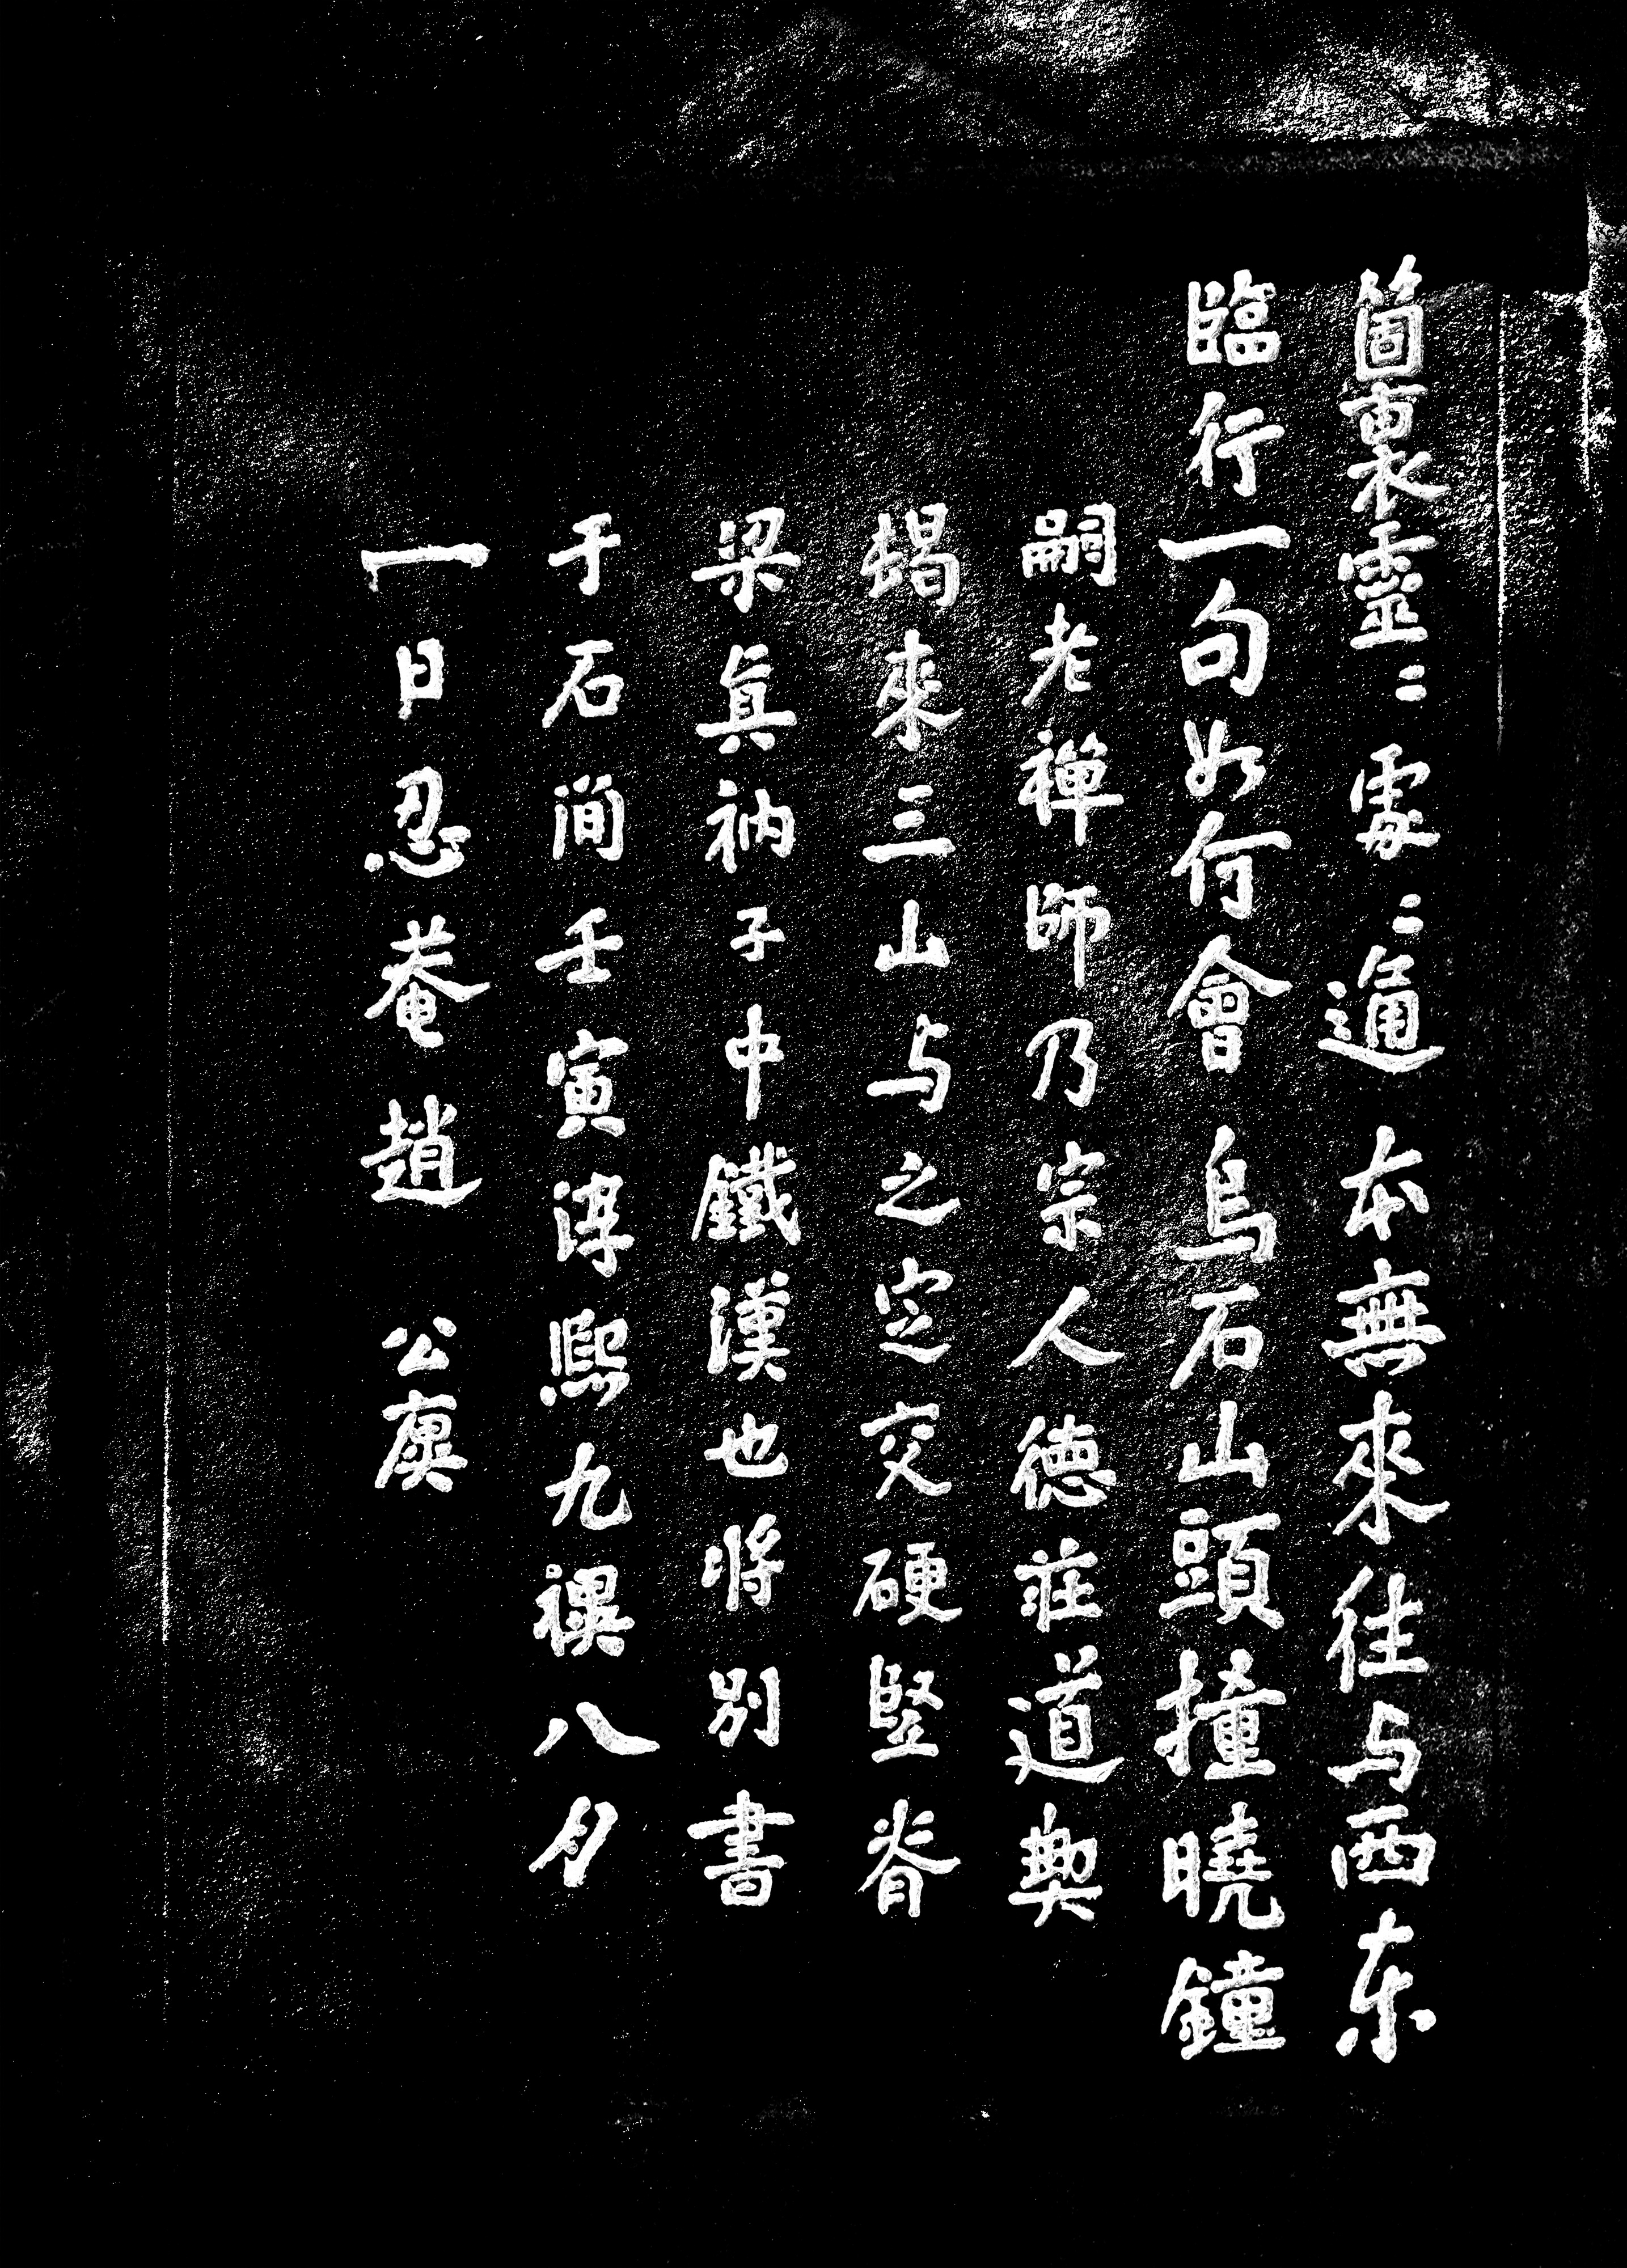 箇裏靈〻處〻通本無來往与西东
臨行一句如何會烏石山頭撞曉鐘
嗣老禅師乃宗人德莊道契
朅來三山与之定交硬竪脊
梁真衲子中鐵漢也將別書
于石間壬寅淳熙九禩八月
一日忍菴趙公